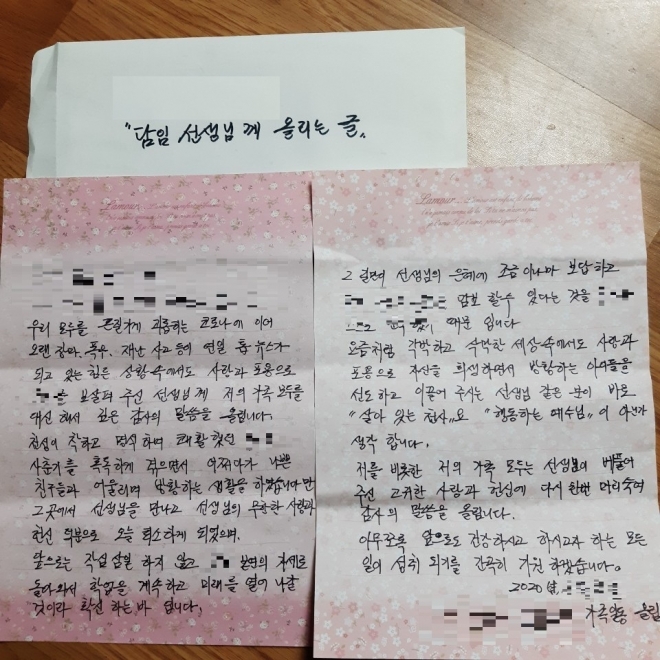 "담임 선생님께 올리는 글"
L'amour
우리 모두를 끈질기게 괴롭히는 코로나에 이어
오랜 장마, 폭우, 재난 사고 등이 연일 톱 뉴스가
되고 있는 힘든 상황 속에서도 사랑과 포용으로
보살펴 주신 선생님께 저의 가족 모두를
대신해서 깊은 감사의 말씀을 올립니다.
천성이 착하고 명석하며 쾌활했던
사춘기를 혹독하게 겪으면서 어쩌다가 나쁜
친구들과 어울리며 방황하는 생활을 하였습니다만
그곳에서 선생님을 만나고 선생님의 무한한 사랑과
헌신 덕분으로 오늘 퇴소하게 되었으며.
앞으로는 작심삼일 하지 않고 본연의 자세로
돌아와서 학업을 계속하고 미래를 열어 나갈
것이라 확신 하는 바 입니다.
L'amour
그 길만이 선생님의 은혜에 조금이나마 보답하고
담보 할수 있다는 것을
때문 입니다
요즘처럼 각박하고 삭막한 세상속에서도 사랑과
포용으로 자신을 희생하면서 방황하는 아이들을
선도하고 이끌어 주시는 선생님 같은 분이 바로
"살아 있는 천사"요 "행동하는 예수님"이 아닌가
생각 합니다.
저를 비롯한 저의 가족 모두는 선생님이 베풀어
주신 고귀한 사랑과 헌신에 다시 한번 머리숙여
감사의 말씀을 올립니다.
아무쪼록 앞으로도 건강하시고 하시고자 하는 모든
일이 성취 되기를 간곡히 기원 하겠습니다.
2020년
가족일동 올림